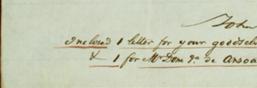 John
Inclosed 1 letter for your goodself
& 1 for Mr Dom. Ga. de Ansoa